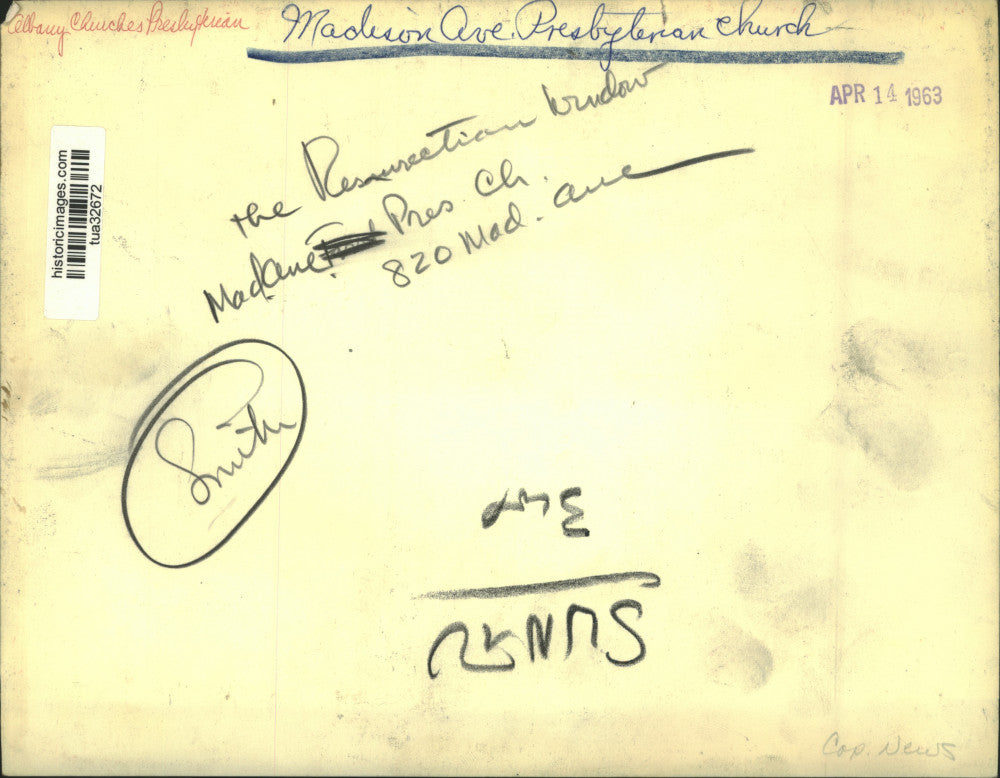 Albany Churches Presbyterian
Madison Ave. Presbyterian Church
APR 14 1963
the Resurrection Window
Mad. Ave. Pres. Ch.
820 Mad. ave
historicimages.com
tua32672
Smith
SUN
Cap. News